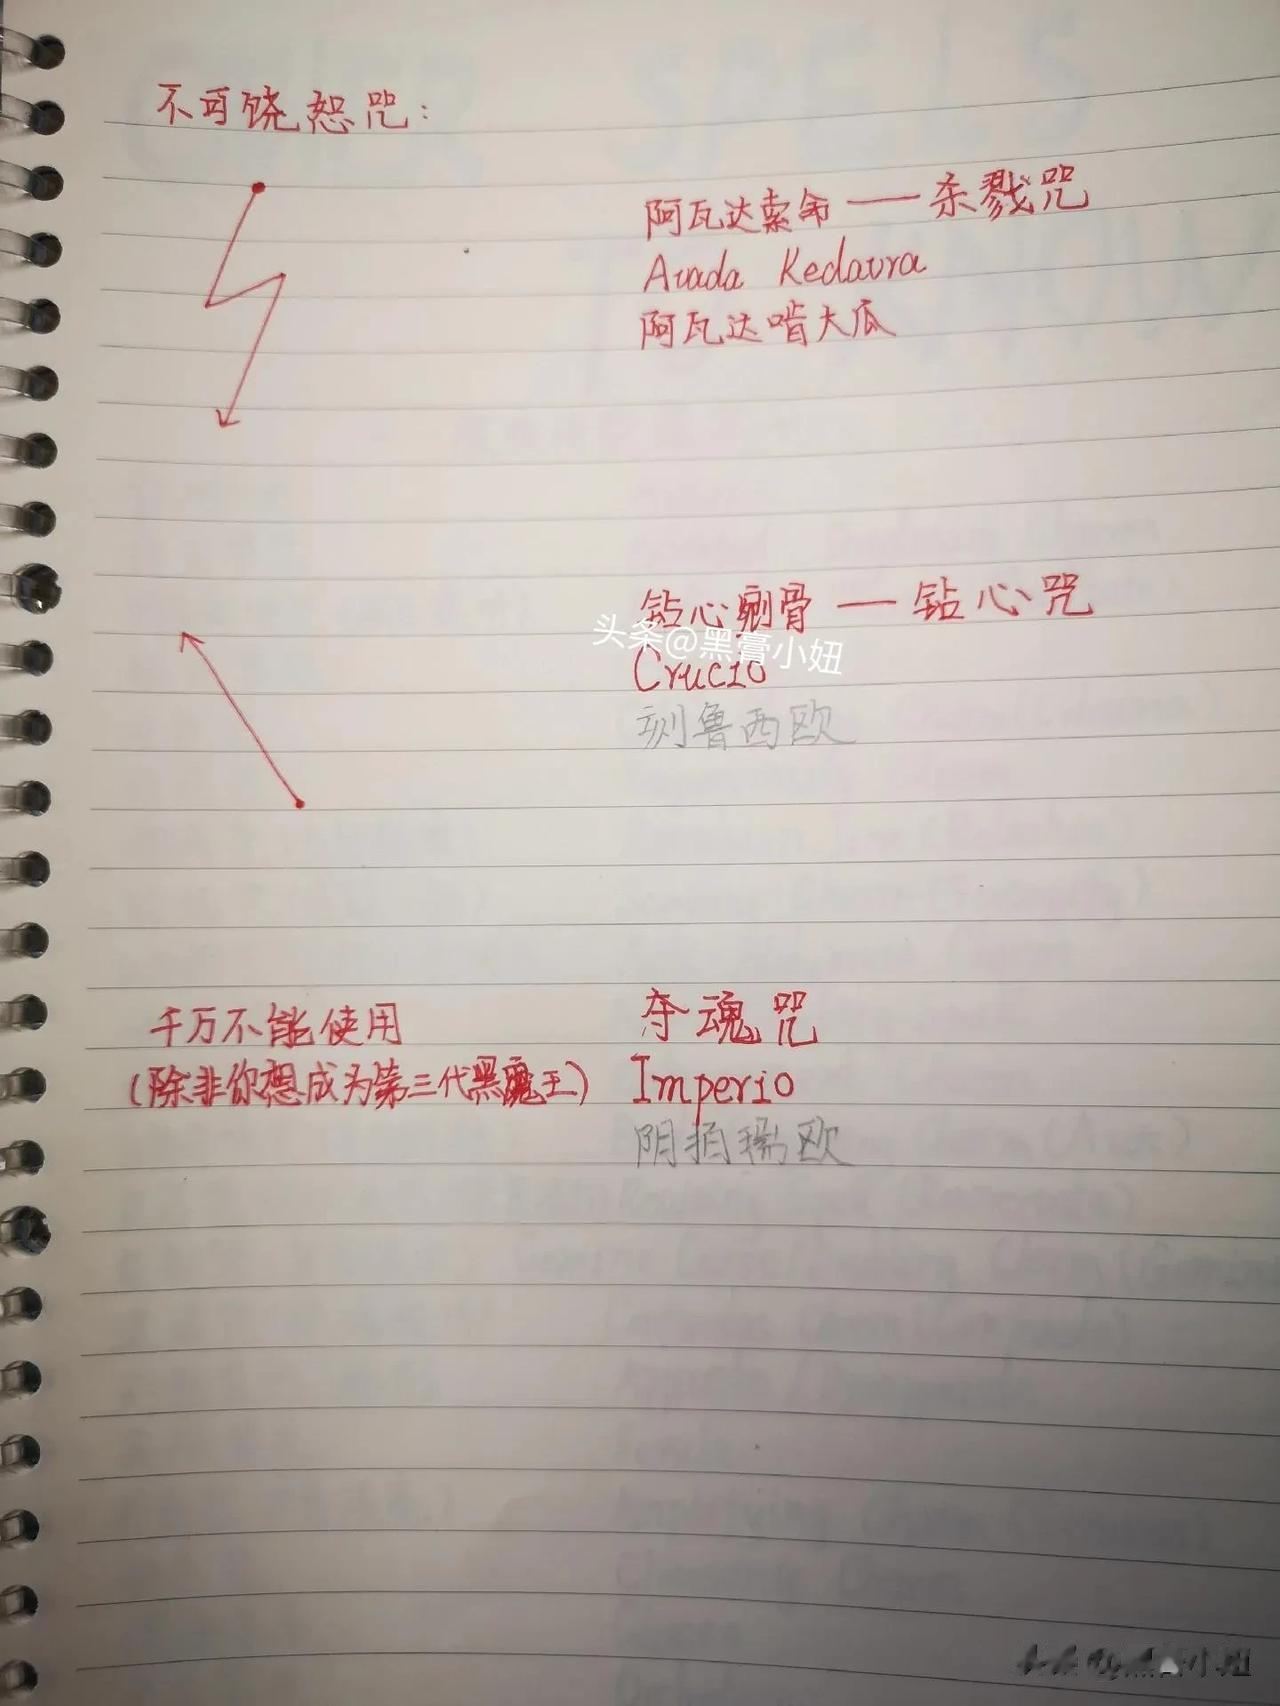 不可饶恕咒：
阿瓦达索命——杀戮咒
Avada Kedavra
阿瓦达啃大瓜
钻心剜骨——钻心咒
头条@黑膏小妞
Crucio
刻鲁西欧
千万不能使用
夺魂咒
(除非你想成为第三代黑魔王)
Imperio
阴拍瑞欧